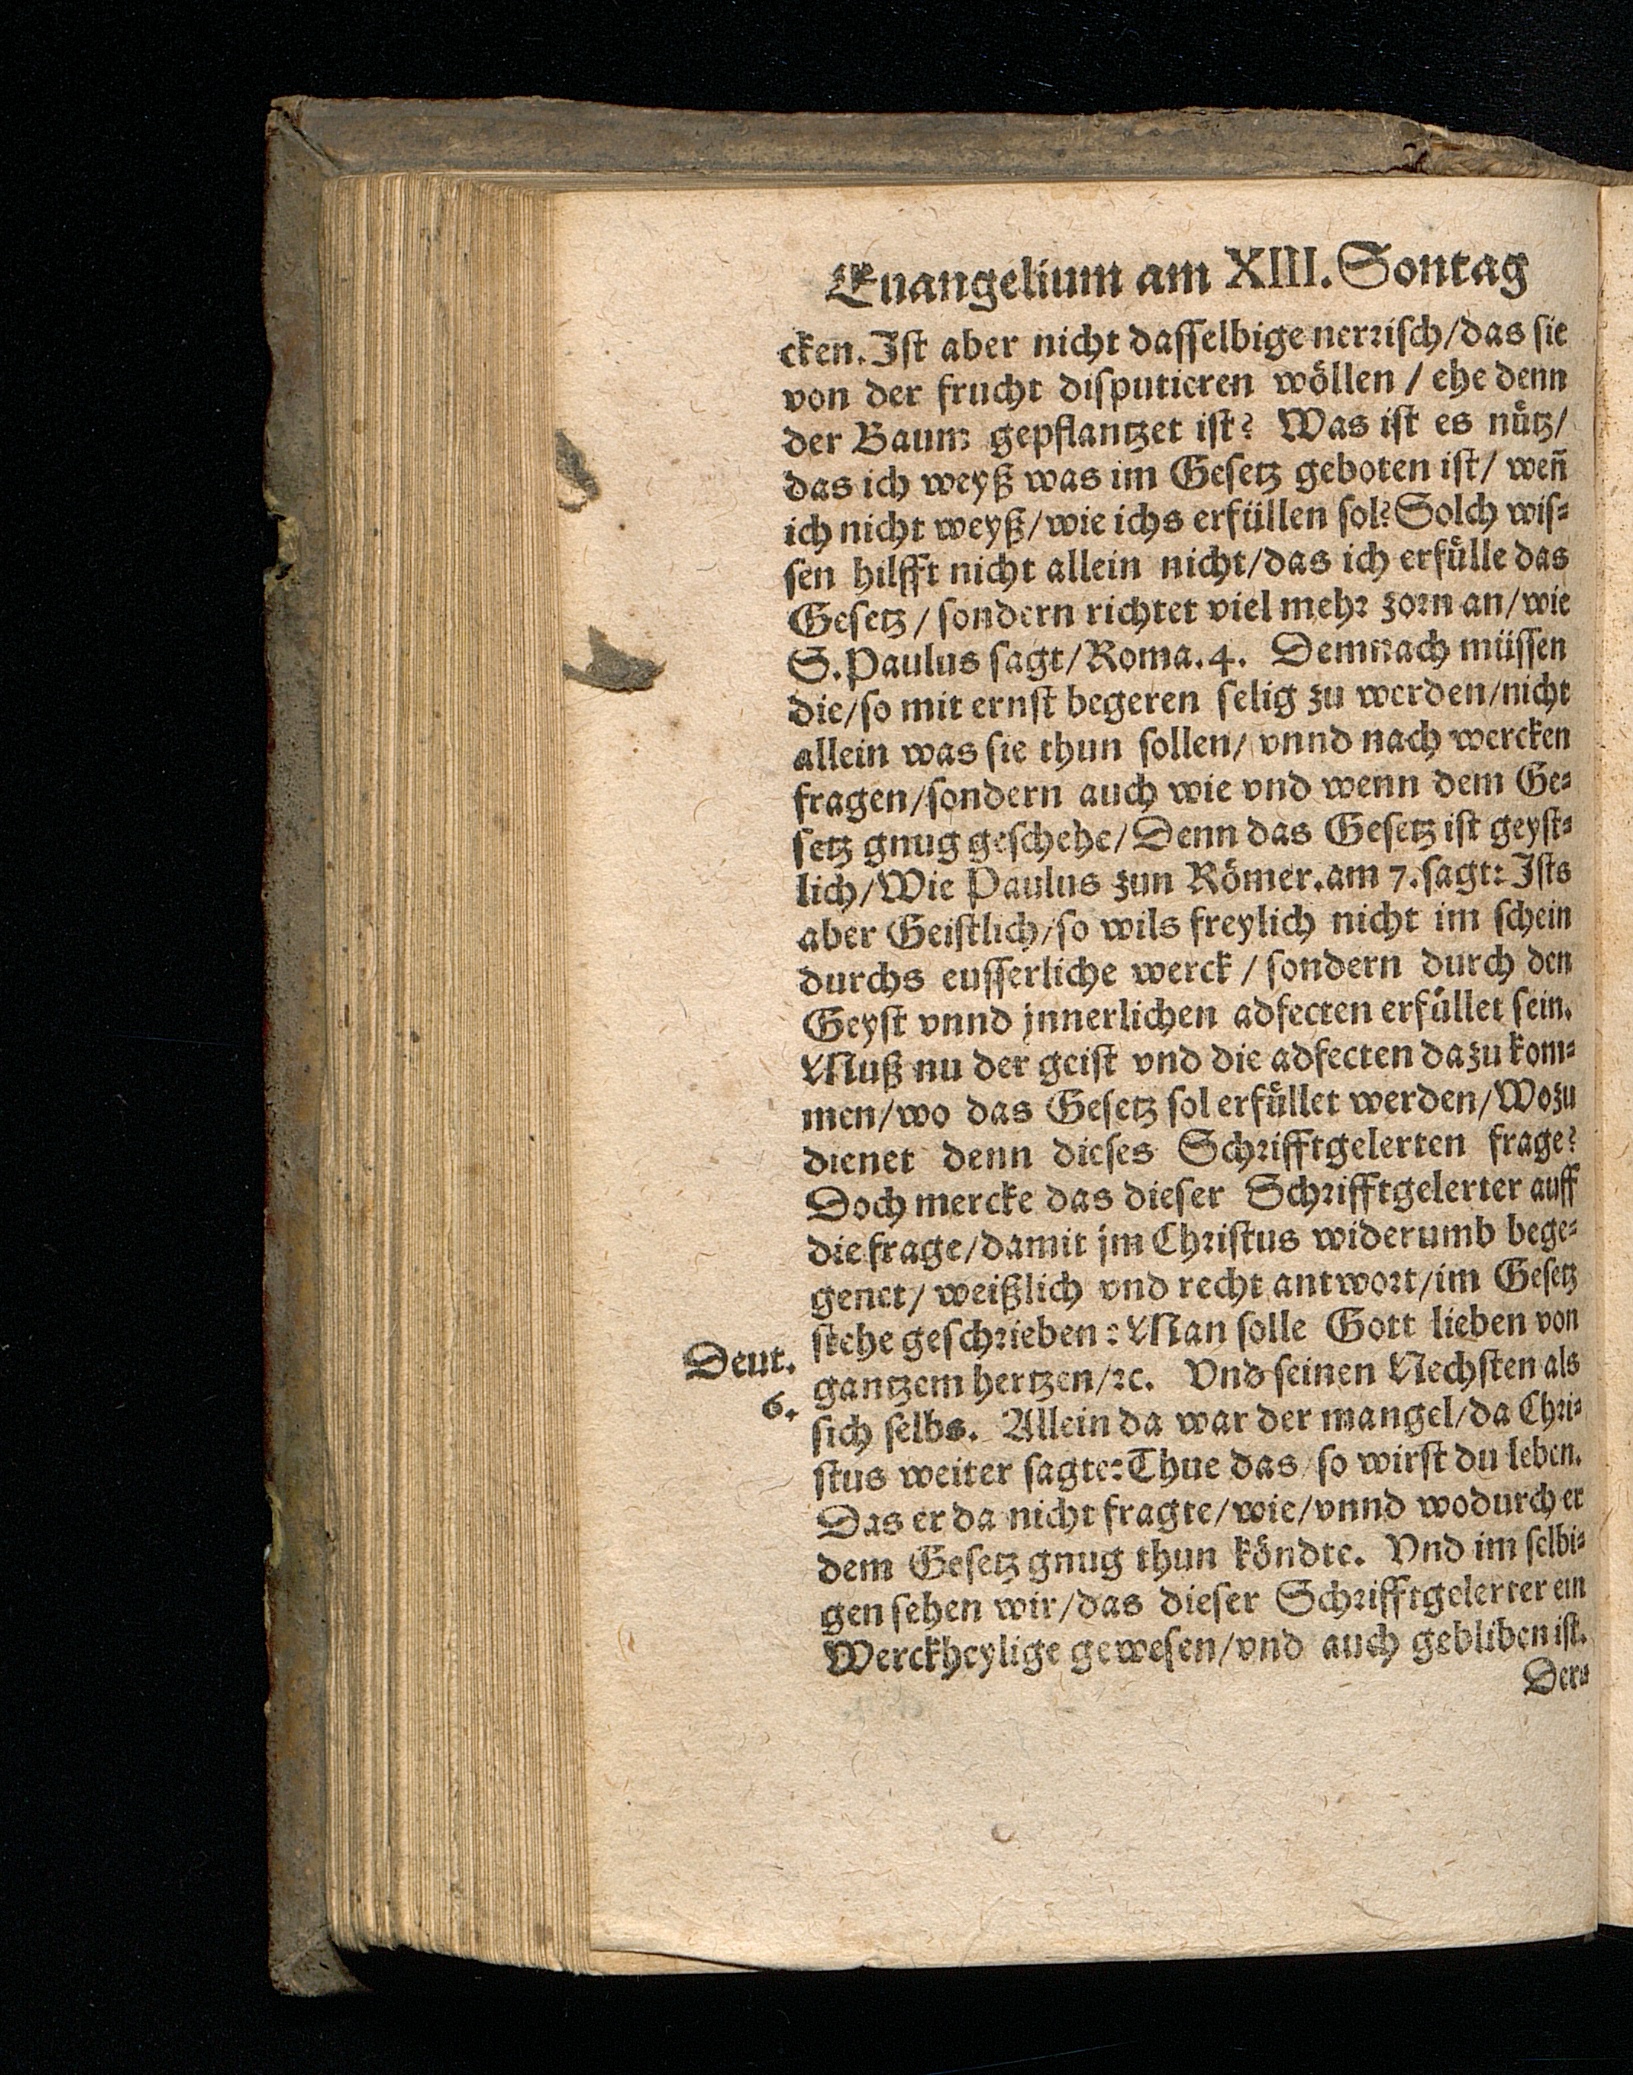 Euangelium am XIII. Sontag
cken. Ist aber nicht dasselbige nerrisch/das sie
von der frucht disputieren wöllen / ehe denn
der Baum gepflantzet ist? Was ist es nütz/
das ich weyß was im Gesetz geboten ist/ weñ
ich nicht weyß/wie ichs erfüllen sol? Solch wis-
sen hilfft nicht allein nicht/das ich erfülle das
Gesetz/ sondern richtet viel mehr zorn an/wie
S. Paulus sagt/Roma. 4. Demnach müssen
die/so mit ernst begeren selig zu werden/nicht
allein was sie thun sollen/ vnnd nach wercken
fragen/sondern auch wie vnd wenn dem Ge-
setz gnug geschehe/Denn das Gesetz ist geyst-
lich/Wie Paulus zun Römer. am 7. sagt: Ists
aber Geistlich/so wils freylich nicht im schein
durchs eusserliche werck / sondern durch den
Geyst vnnd jnnerlichen adfecten erfüllet sein.
Muß nu der geist vnd die adfecten dazu kom-
men/wo das Gesetz sol erfüllet werden/Wozu
dienet denn dieses Schrifftgelerten frage?
Doch mercke das dieser Schrifftgelerter auff
die frage/damit jm Christus widerumb bege-
genet/ weißlich vnd recht antwort/im Gesetz
stehe geschrieben: Man solle Gott lieben von
Deut.
6.
gantzem hertzen/ꝛc. Vnd seinen Nechsten als
sich selbs. Allein da war der mangel/da Chri-
stus weiter sagte: Thue das/so wirst du leben.
Das er da nicht fragte/wie/vnnd wodurch er
dem Gesetz gnug thun köndte. Vnd im selbi-
gen sehen wir/das dieser Schrifftgelerter ein
Werckheylige gewesen/vnd auch gebliben ist.